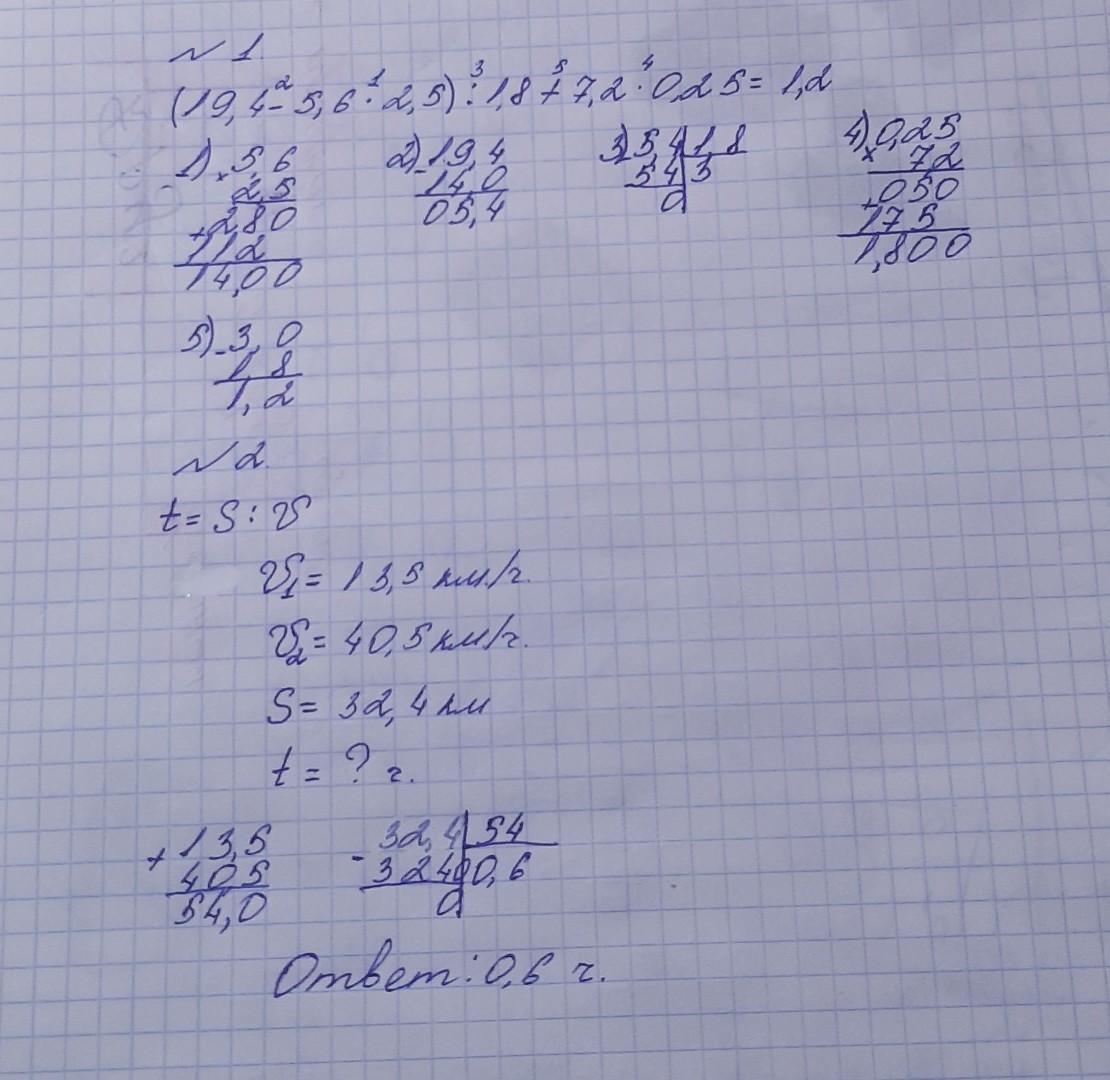 № 1.
(19,4 - 5,6 · 2,5) : 1,8 + 7,2 · 0,25 = 1,2
2 1 3 5 4
1) × 5,6
2,5
+ 280
112
14,00
2) - 19,4
14,0
05,4
3) - 54 | 18
54 | 3
0
4) 0,25
× 72
+ 050
175
1,800
5) - 3,0
1,8
1,2
№ 2.
t = S : V
V₁ = 13,5 км/ч.
V₂ = 40,5 км/ч.
S = 32,4 км
t = ? ч.
+ 13,5
405
54,0
- 32,4 | 54
3240 | 0,6
0
Ответ: 0,6 ч.